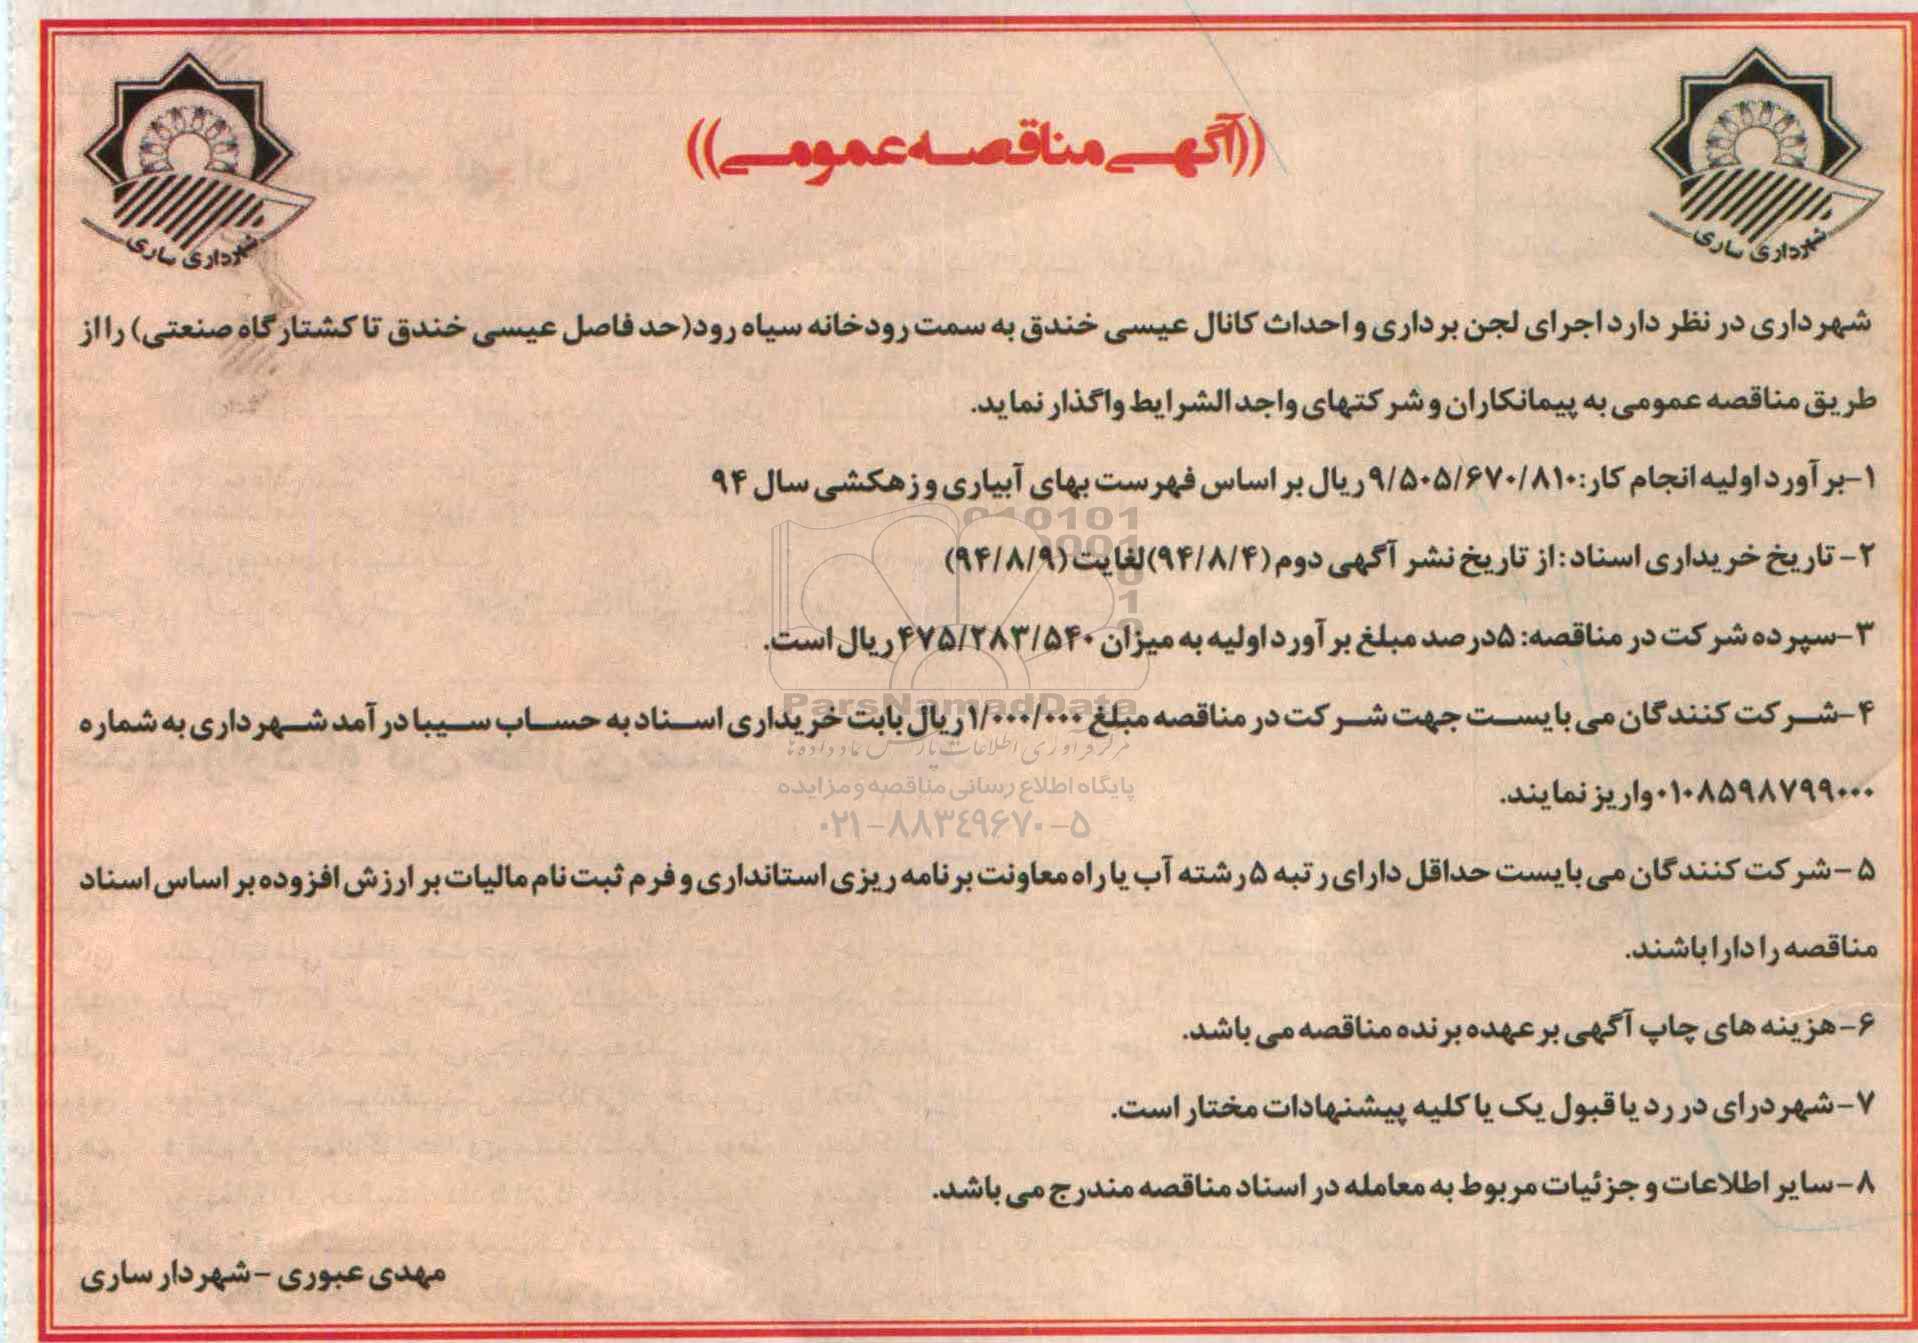 ((آگهی مناقصه عمومی))
شهرداری ساری
شهرداری ساری
شهرداری در نظر دارد اجرای لجن برداری و احداث کانال عیسی خندق به سمت رودخانه سیاه رود(حد فاصل عیسی خندق تا کشتارگاه صنعتی) را از
طریق مناقصه عمومی به پیمانکاران و شرکتهای واجد الشرایط واگذار نماید.
۱-برآورد اولیه انجام کار:۹/۵۰۵/۶۷۰/۸۱۰ریال بر اساس فهرست بهای آبیاری و زهکشی سال ۹۴
۲- تاریخ خریداری اسناد :از تاریخ نشر آگهی دوم (۹۴/۸/۴)لغایت (۹۴/۸/۹)
۳-سپرده شرکت در مناقصه: ۵درصد مبلغ برآورد اولیه به میزان ۴۷۵/۲۸۳/۵۴۰ریال است.
۴-شرکت کنندگان می بایست جهت شرکت در مناقصه مبلغ ۱/۰۰۰/۰۰۰ریال بابت خریداری اسناد به حساب سیبا درآمد شهرداری به شماره
۰۱۰۸۵۹۸۷۹۹۰۰۰واریز نمایند.
۵-شرکت کنندگان می بایست حداقل دارای رتبه ۵رشته آب یا راه معاونت برنامه ریزی استانداری و فرم ثبت نام مالیات بر ارزش افزوده بر اساس اسناد
مناقصه را دارا باشند.
۶-هزینه های چاپ آگهی بر عهده برنده مناقصه می باشد.
۷-شهردرای در رد یا قبول یک یا کلیه پیشنهادات مختار است.
۸-سایر اطلاعات و جزئیات مربوط به معامله در اسناد مناقصه مندرج می باشد.
مهدی عبوری -شهردار ساری
ParsNamadData
مرکز فرآوری اطلاعات پارس نماد داده ها
پایگاه اطلاع رسانی مناقصه و مزایده
۰۲۱-۸۸۳۴۹۶۷۰-۵